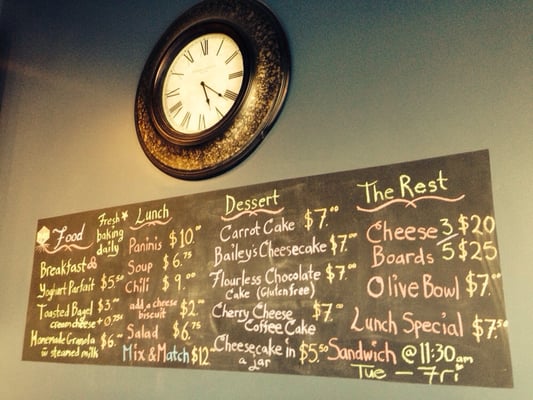 Food
Fresh*
baking
daily
Breakfast
Yoghurt Parfait $5.50
Toasted Bagel $3.00
cream cheese + 0.75
Homemade Granola $6.00
w steamed milk
Lunch
Paninis $10.00
Soup $6.75
Chili $9.00
add a cheese biscuit $2.00
Salad $6.75
Mix & Match $12
Dessert
Carrot Cake $7.00
Bailey's Cheesecake $7.00
Flourless Chocolate $7.00
Cake (Gluten free)
Cherry Cheese $7.00
Coffee Cake
Cheesecake in $5.50
a jar
The Rest
Cheese 3 $20
Boards 5 $25
Olive Bowl $7.00
Lunch Special $7.50
Sandwich @ 11:30am
Tue - Fri